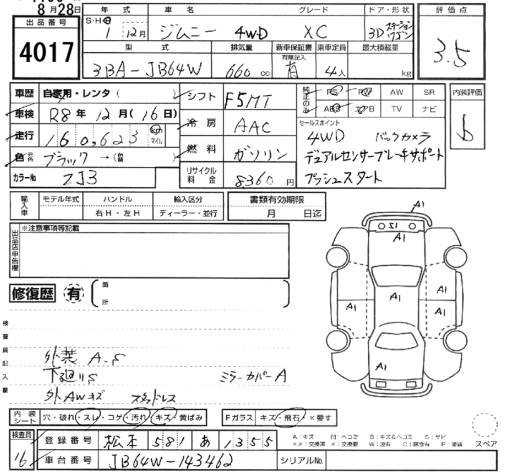 8月28日
出品番号
4017
年式 車名 グレード ドア・形状 評価点
S・H・R 1 12月 ジムニー 4WD XC 3D ステーションワゴン 3.5
型式 排気量 新車保証書 乗車定員 最大積載量
記録簿入
3BA-JB64W 660cc 有 4人 kg
車歴 自家用・レンタ
車検 R8年12月(16日)
走行 160,623 km マイル
色 ブラック→
カラーNo ZJ3
シフト F5MT
冷房 AAC
燃料 ガソリン
リサイクル料金 8360円
AW SR
TV ナビ
内装評価
b
セールスポイント
4WD バックカメラ
デュアルセンサーブレーキサポート
プッシュスタート
輸入車 モデル年式 ハンドル 輸入区分 書類有効期限
右H・左H ディーラー・並行 月 日迄
出品店申告欄
※注意事項等記載
修復歴 有 箇所
検査員記入欄
外装 A-S
下廻りS ミラーカバーA
外AWキズ スタッドレス
A1
A1
A1 A1 A1
A1
スペア
内装シート 穴・破れ・スレ・コゲ・汚れ・キズ・黄ばみ Fガラス キズ・飛石・×要す
検査員
16
登録番号 松本 581 あ 1355
車台番号 JB64W-143462 シリアルNo.